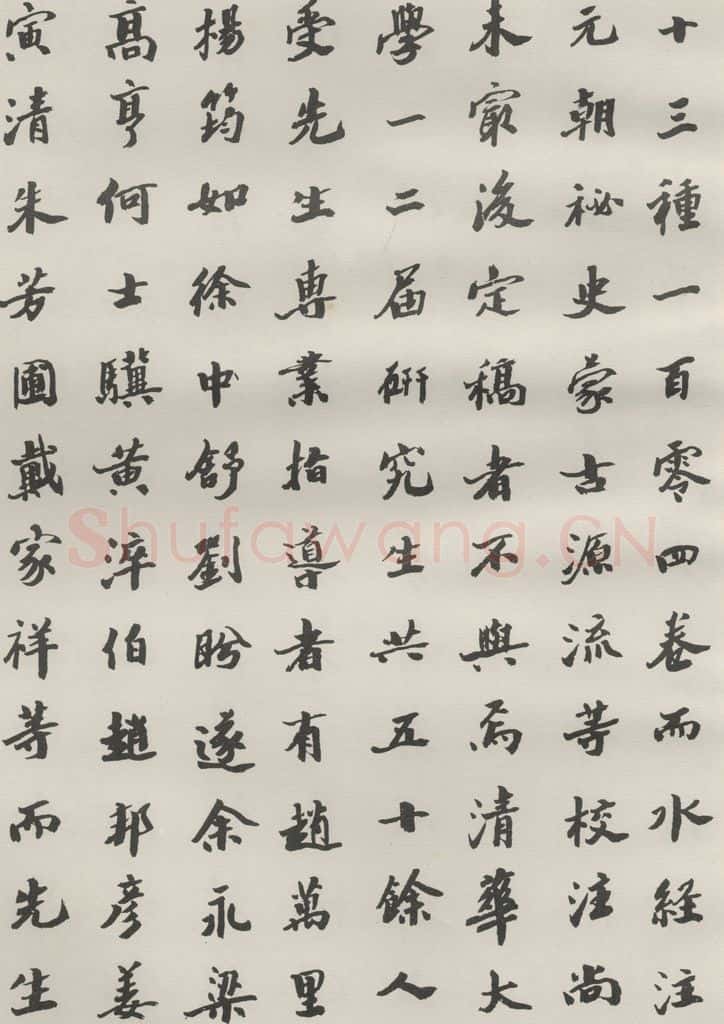 十三種一百零四卷而水経注
元朝祕史蒙古源流等校注尚
未㝡後定稿者不與焉清華大
學一二届研究生共五十餘人
受先生専業指導者有趙萬里
楊筠如徐中舒劉盼遂余永梁
髙亨何士驥黄淬伯趙邦彦姜
寅清朱芳圃戴家祥等而先生
Shufawang.CN